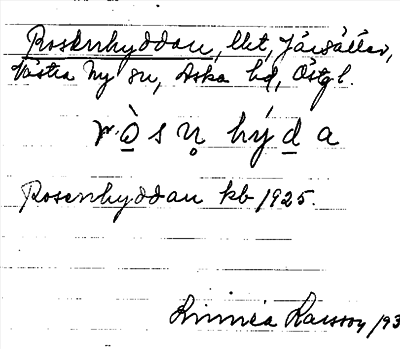 Rosenhyddan, lht, Järsätter,
Västra Ny sn, Aska hd, Östgl.
rò̱sṇhýḏa
Rosenhyddan kb 1925.
Linnéa Larsson /93